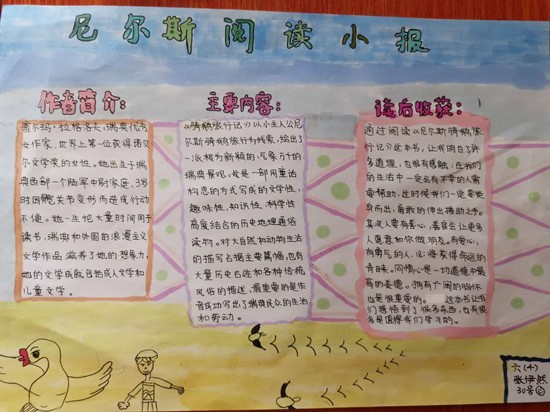 尼尔斯阅读小报
作者简介:
塞尔玛·拉格洛夫,瑞典优秀
女作家,世界上第一位获得诺贝
尔文学奖的女性。她出生于瑞
典西部一个陆军中尉家庭,3岁
时因髋关节变形而造成行动
不便。她一生把大量时间用于
读书,瑞典和外国的浪漫主义
文学作品滋养了她的想象力。
她的文学成就包括成人文学和
儿童文学。
主要内容:
《骑鹅旅行记》以小主人公尼
尔斯骑鹅旅行为线索,绘出了
一派极为新颖的,气象万千的
瑞典景观。这是一部用童话
构思的方式写成的文学性,
趣味性,知识性,科学性
高度结合的历史地理通俗
读物。对大自然和动物生活
的描写占据主要篇幅,也有
大量历史古迹和各种传统
风俗的描述,最重要的是作
者成功写出了瑞典民众的生活
和劳动。
读后收获:
通过阅读《尼尔斯骑鹅旅
行记》这本书,让我明白了许
多道理,也很有感触,在我们
的生活中一定会有不幸的人需
要帮助,这时候我们一定要挺
身而出,勇敢的伸出援助之手。
其次人要有善心,善良会让更多
人愿意和你做朋友。有爱心,
有勇气的人,必将获得命运的
青睐。同情心是一切道德中最高
的美德。拥有广阔的胸怀
也是很重要的。这本书让我
们感悟到了很多东西,也有很
多是值得我们学习的。
六(4)
张伊然
30号